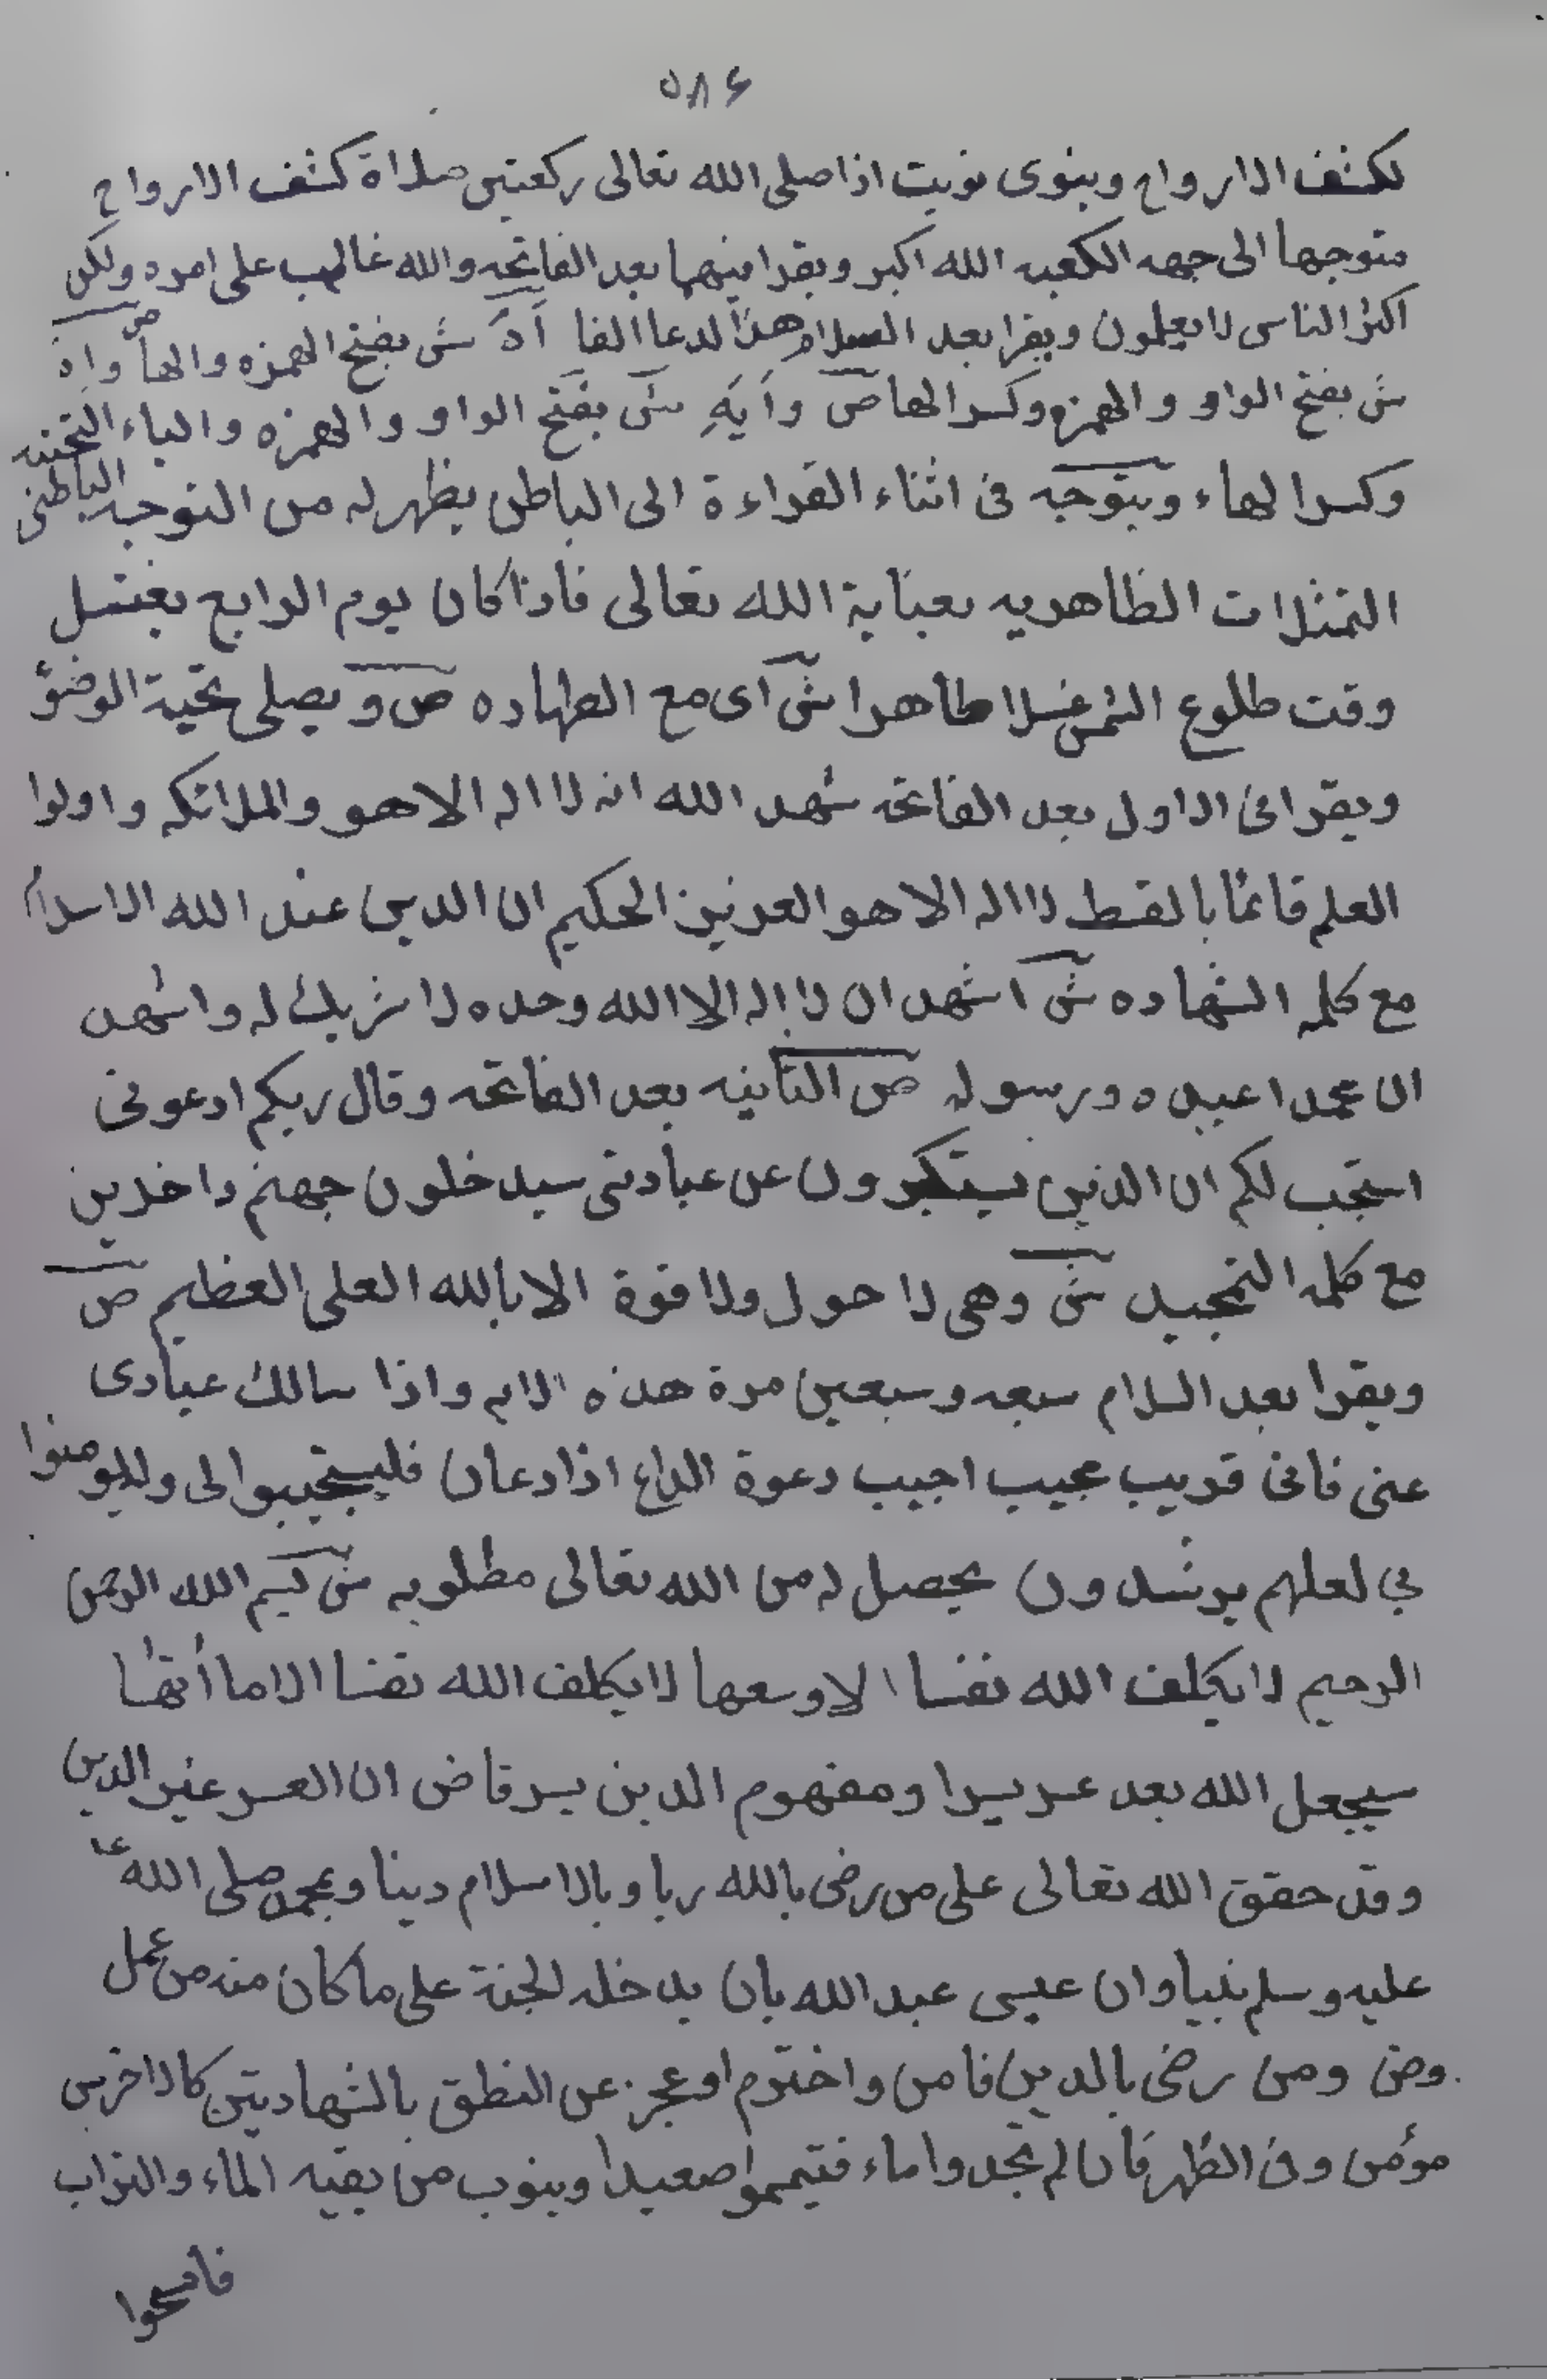 ٥٨٤
لكشف الارواح وينوى نويت اذا صلى الله تعالى ركعتين صلاة كشف الارواح
متوجها الى جهه الكعبه الله اكبر ويقرا فيهما بعد الفاتحه والله غالب على امره ولكن
اكثر الناس لا يعلمون ويقرا بعد السلام هذا لدعا الفا اَهَ ش بفتح الهمزه والها ص واِهَ
ش بفتح الواو والهمزه وكسر الها ص وآيَهِ ش بفتح الواو والهمزه والياء التحتيه
وكسر الهاء ويتوجه فى اثناء القراءة الى الباطن يظهر له من التوجه الباطنى
التمثلات الظاهريه بعناية الله تعالى فاذا كان يوم الرابع يغتسل
وقت طلوع الشمس غسلا طاهرا ش اى مع الطهاده ص ويصلى تحية الوضؤ
ويقرا فى الاول بعد الفاتحه شهد الله انه لا اله الا هو والملائكه واولوا
العلم قائمًا بالقسط لا اله الا هو العزيز الحكيم ان الدين عند الله الاسلام
مع كلمه الشهاده ش اشهد ان لا اله الا الله وحده لا شريك له واشهد
ان محمدا عبده ورسوله ص الثانيه بعد الفاتحه وقال ربكم ادعونى
استجب لكم ان الذين يستكبرون عن عبادتى سيدخلون جهنم داخرين
مع كلمه التمجيد ش وهى لا حول ولا قوة الا بالله العلى العظيم ص
ويقرا بعد السلام سبعه وسبعين مرة هذه الايه واذا سالك عبادى
عنى فانى قريب مجيب اجيب دعوة الداع اذا دعان فليستجيبوا لى وليومنوا
بي لعلهم يرشدون يحصل له من الله تعالى مطلوبه ش بسم الله الرحمن
الرحيم لا يكلف الله نفسا الا وسعها لا يكلف الله نفسا الا ما أتها
سيجعل الله بعد عسر يسرا ومفهوم الدين يسر قاض ان العسر غير الدين
وقد حقق الله تعالى على من رضى بالله ربا وبالاسلام دينا وبمحمد صلى الله
عليه وسلم نبيا وان عيسى عبد الله بان يدخله الجنة على ما كان منه من عمل
ومن رضى بالدين فامن واخترم او عجز عن النطق بالشهادتين كالاخرس
مؤمن وفى الطهر فان لم تجدوا ماء فتيمموا صعيدا وينوب من بقيه الماء والتراب
فامسحوا